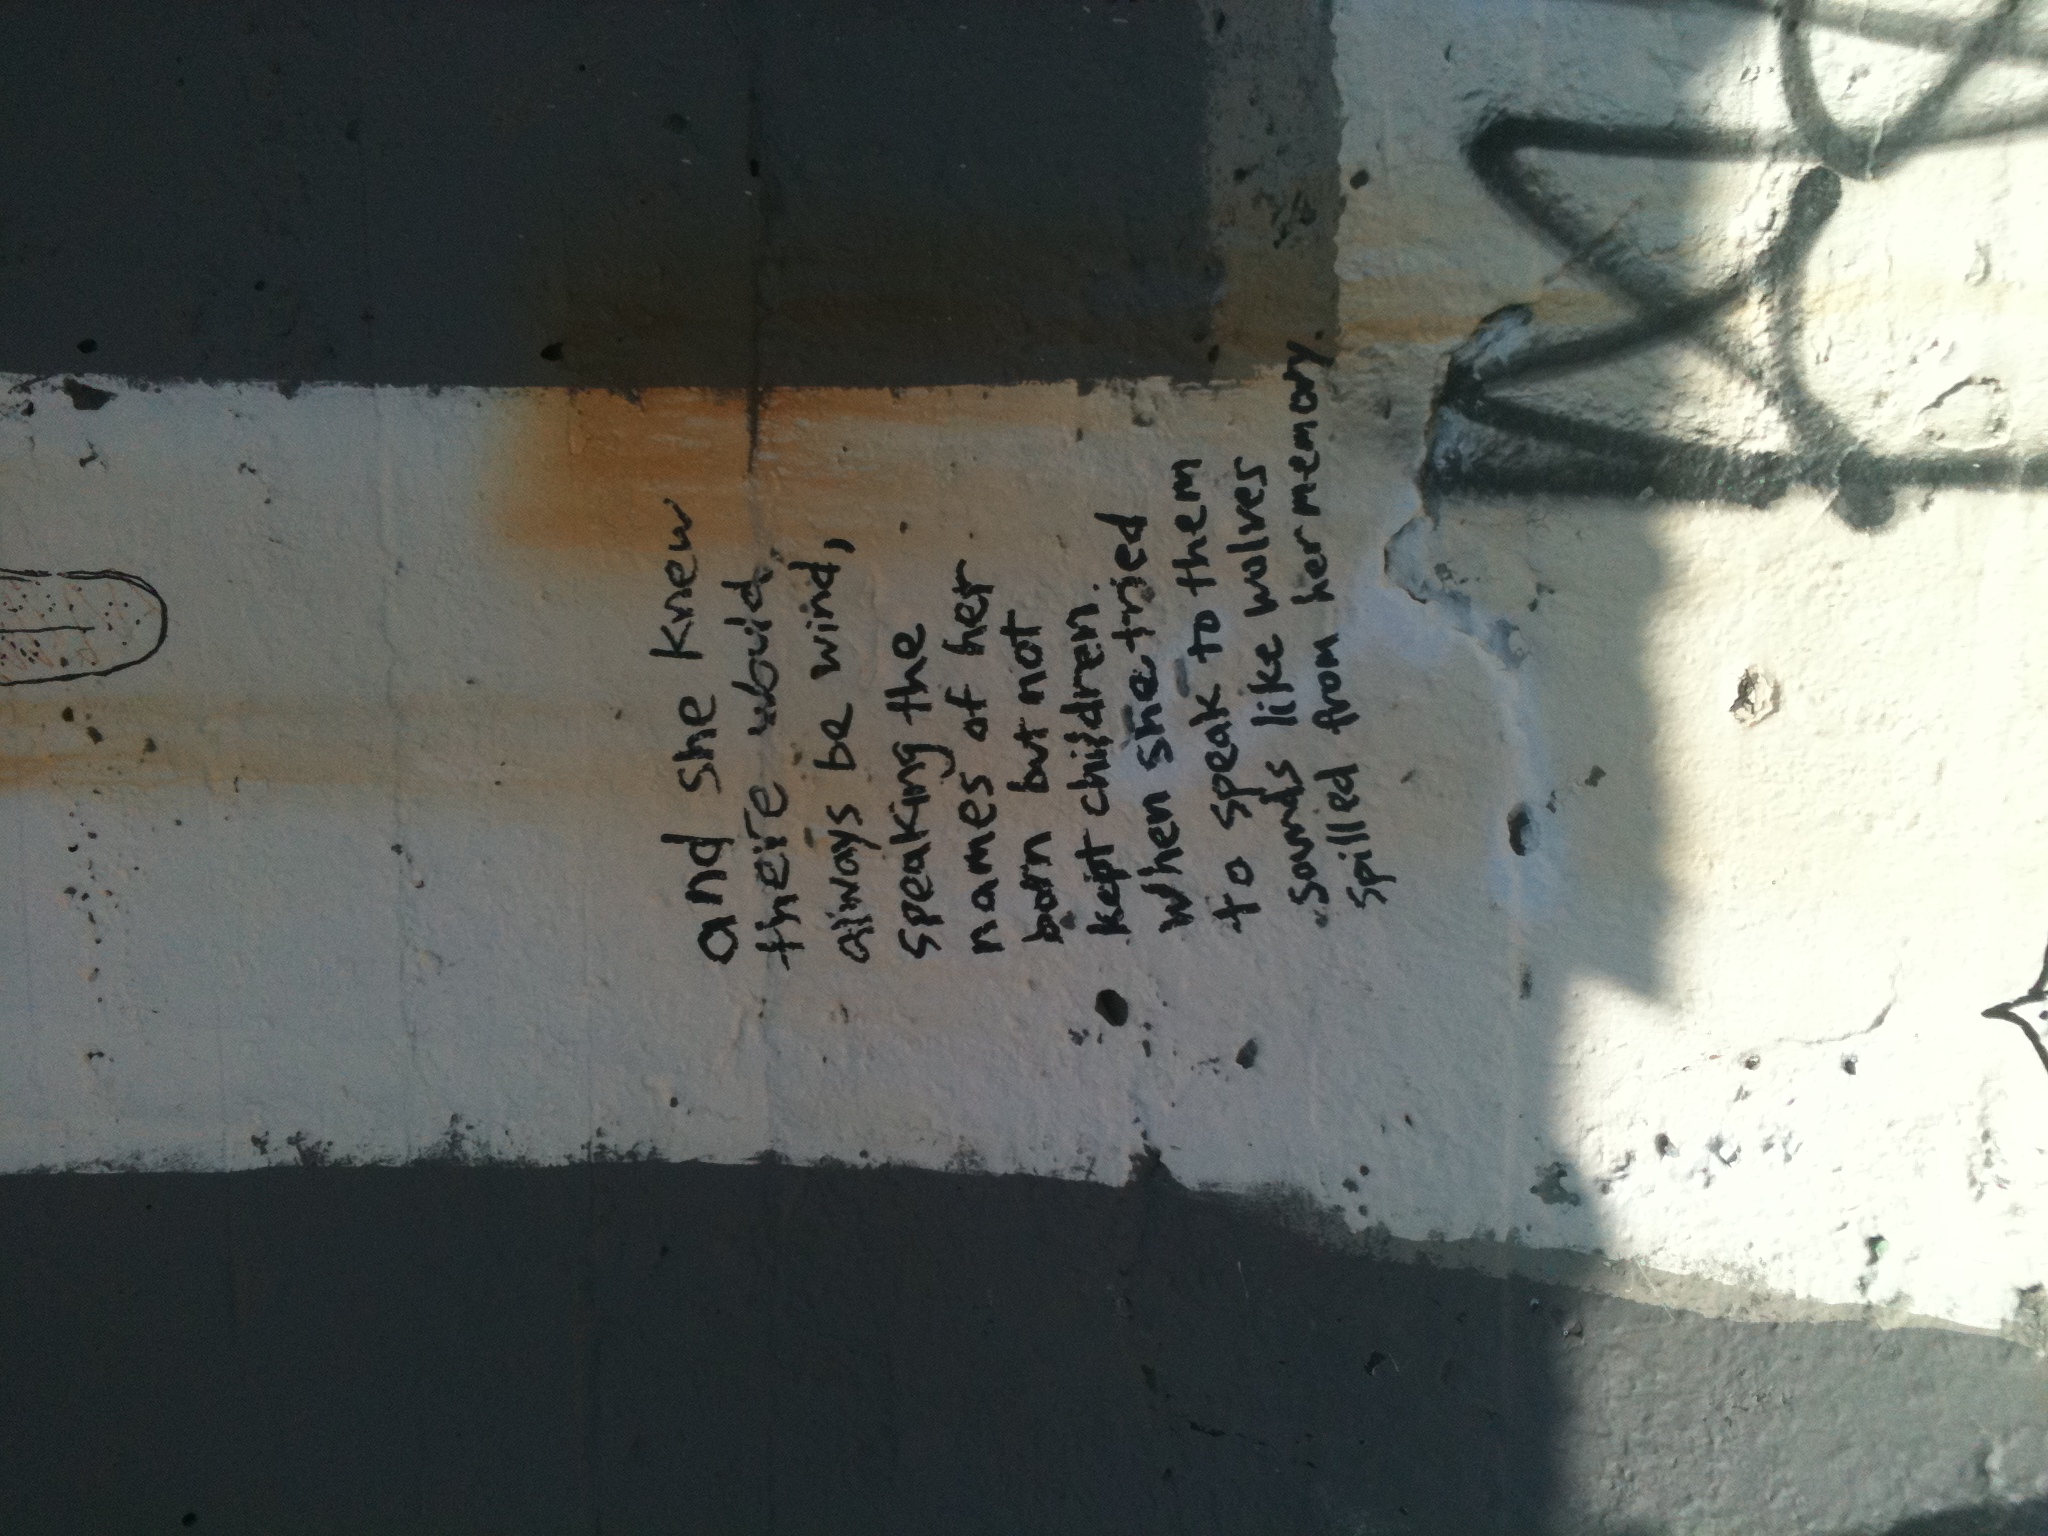 and she knew
there would
always be wind,
speaking the
names of her
born but not
kept children.
When she tried
to speak to them
sounds like wolves
spilled from her memory.